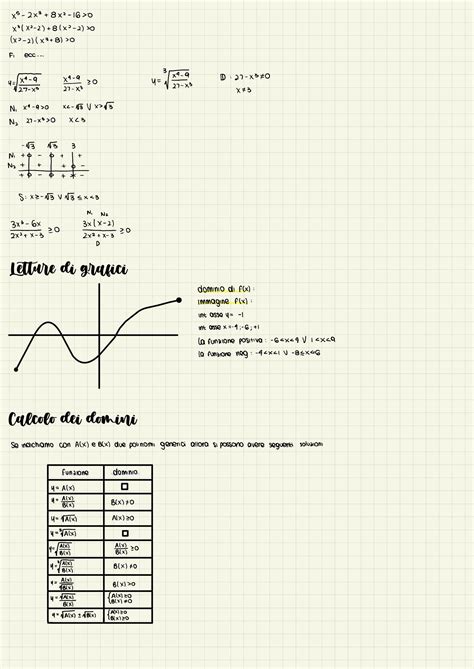 x⁵ - 2x³ + 8x² - 16 > 0
x³(x²-2) + 8(x²-2) > 0
(x²-2)(x³+8) > 0
F₁ ecc...
y = √((x⁴-9)/(27-x³)) (x⁴-9)/(27-x³) ≥ 0 y = ³√((x⁴-9)/(27-x³)) D: 27-x³≠0
x≠3
N₁ x⁴-9>0 x<-√3 V x>√3
N₂ 27-x³>0 x<3
-√3 √3 3
N₁ + - + +
N₂ + + + -
+ - + -
S: x≥-√3 V √3 ≤ x < 3
N₁ N₂
(3x²-6x)/(2x²+x-3) ≥ 0 (3x(x-2))/(2x²+x-3) ≥ 0
D
Letture di grafici
dominio di f(x):
immagine f(x):
int asse y= -1
int asse x=-4;-6;+1
la funzione positiva: -6<x<4 V 1<x<9
la funzione neg: -4<x<1 V -8≤x<6
Calcolo dei domini
Se indichiamo con A(x) e B(x) due polinomi generici allora si possono avere seguenti soluzioni
funzione dominio
y = A(x) □
y = A(x)/B(x) B(x) ≠ 0
y = √A(x) A(x) ≥ 0
y = ³√A(x) □
y = √(A(x)/B(x)) A(x)/B(x) ≥ 0
y = ³√(A(x)/B(x)) B(x) ≠ 0
y = A(x)/√B(x) B(x) > 0
y = √A(x)/B(x) {A(x) ≥ 0 B(x) ≠ 0
y = √A(x) ± √B(x) {A(x) ≥ 0 B(x) ≥ 0